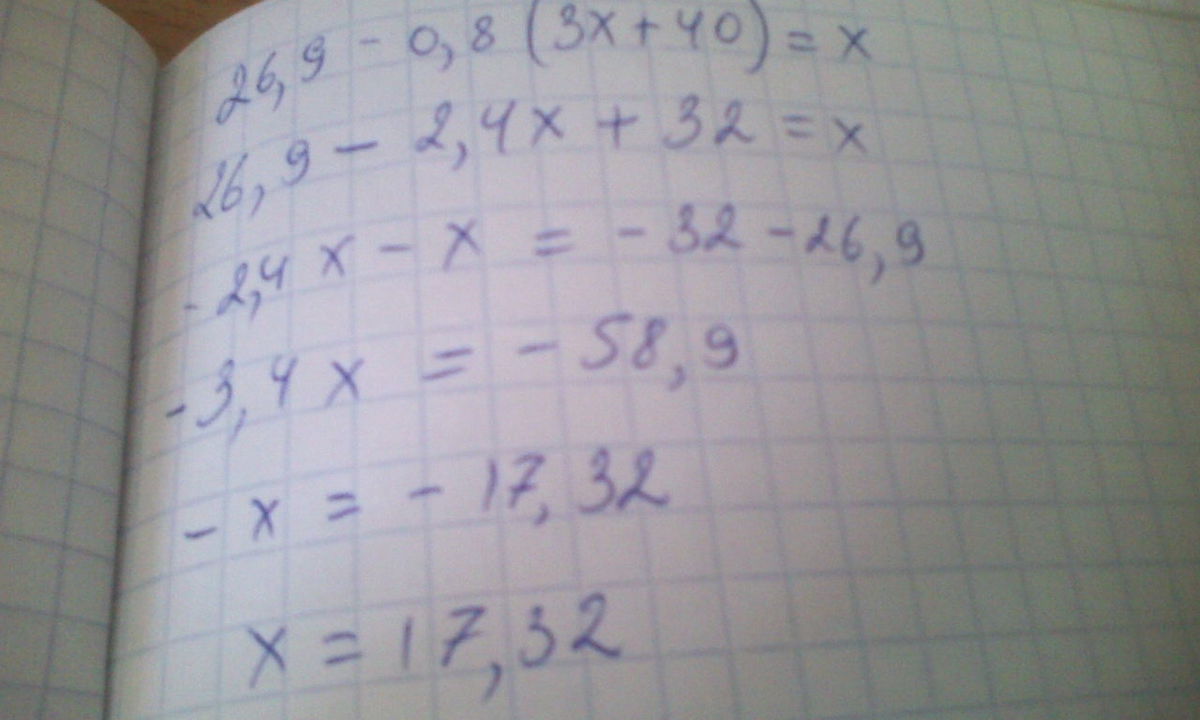 26,9 - 0,8 (3x + 40) = x
26,9 - 2,4x + 32 = x
- 2,4 x - x = - 32 - 26,9
- 3,4 x = - 58,9
- x = - 17,32
x = 17,32